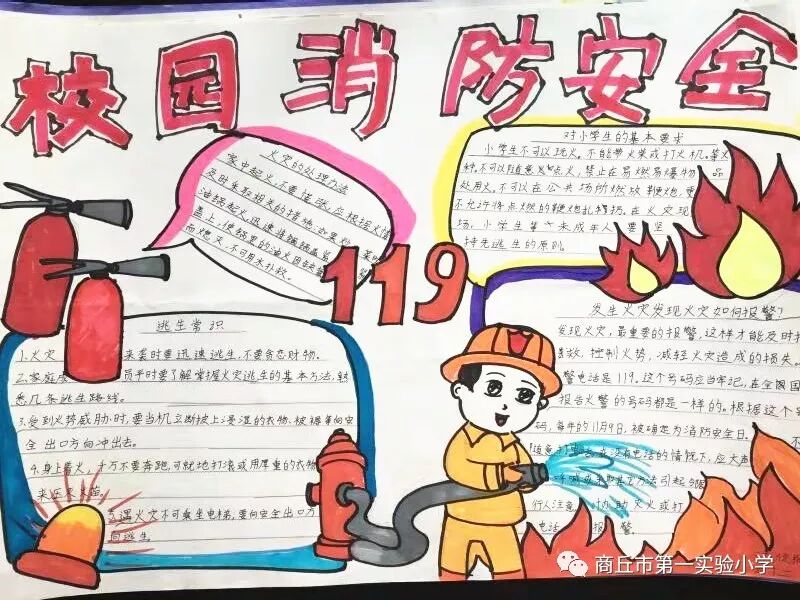 校园消防安全
火灾的处理方法
家中起火,不要慌张,应根据火情
及时采取相关的措施:如果炒菜时
油锅起火迅速将锅盖紧
盖上,使锅里的油火因缺氧
而熄灭,不可用水扑救。
119
对小学生的基本要求
小学生不可以玩火。不能带火柴或打火机。等火
种,不可以随意点火,禁止在易燃易爆物品
处用火。不可以在公共场所燃放鞭炮,更
不允许将点燃的鞭炮乱扔。在火灾现
场,小学生等未成年人要坚
持先逃生的原则
逃生常识
1.火灾来要时要迅速逃生,不要贪恋财物。
2.家庭成员平时要了解掌握火灾逃生的基本方法,熟
悉几条逃生路线。
3.受到火势威胁时,要当机立断披上浸湿的衣物、被褥等向安
全出口方向冲出去。
4.身上着火,千万不要奔跑,可就地打滚或用厚重的衣物
来压灭火苗
5.遇火灾不可乘坐电梯,要向安全出口方
向逃生。
发生火灾发现火灾如何报警?
发现火灾,最重要的报警,这样才能及时扑
救,控制火势,减轻火灾造成的损失。
警电话是119。这个号码应当牢记,在全国
报告火警的号码都是一样的。根据这个号
码,每年的11月9日,被确定为消防安全日。
随意打,在没有电话的情况下,应大声
呼喊或采取其它方法引起
行人注意,协助灭火或打
电话报警。
商丘市第一实验小学